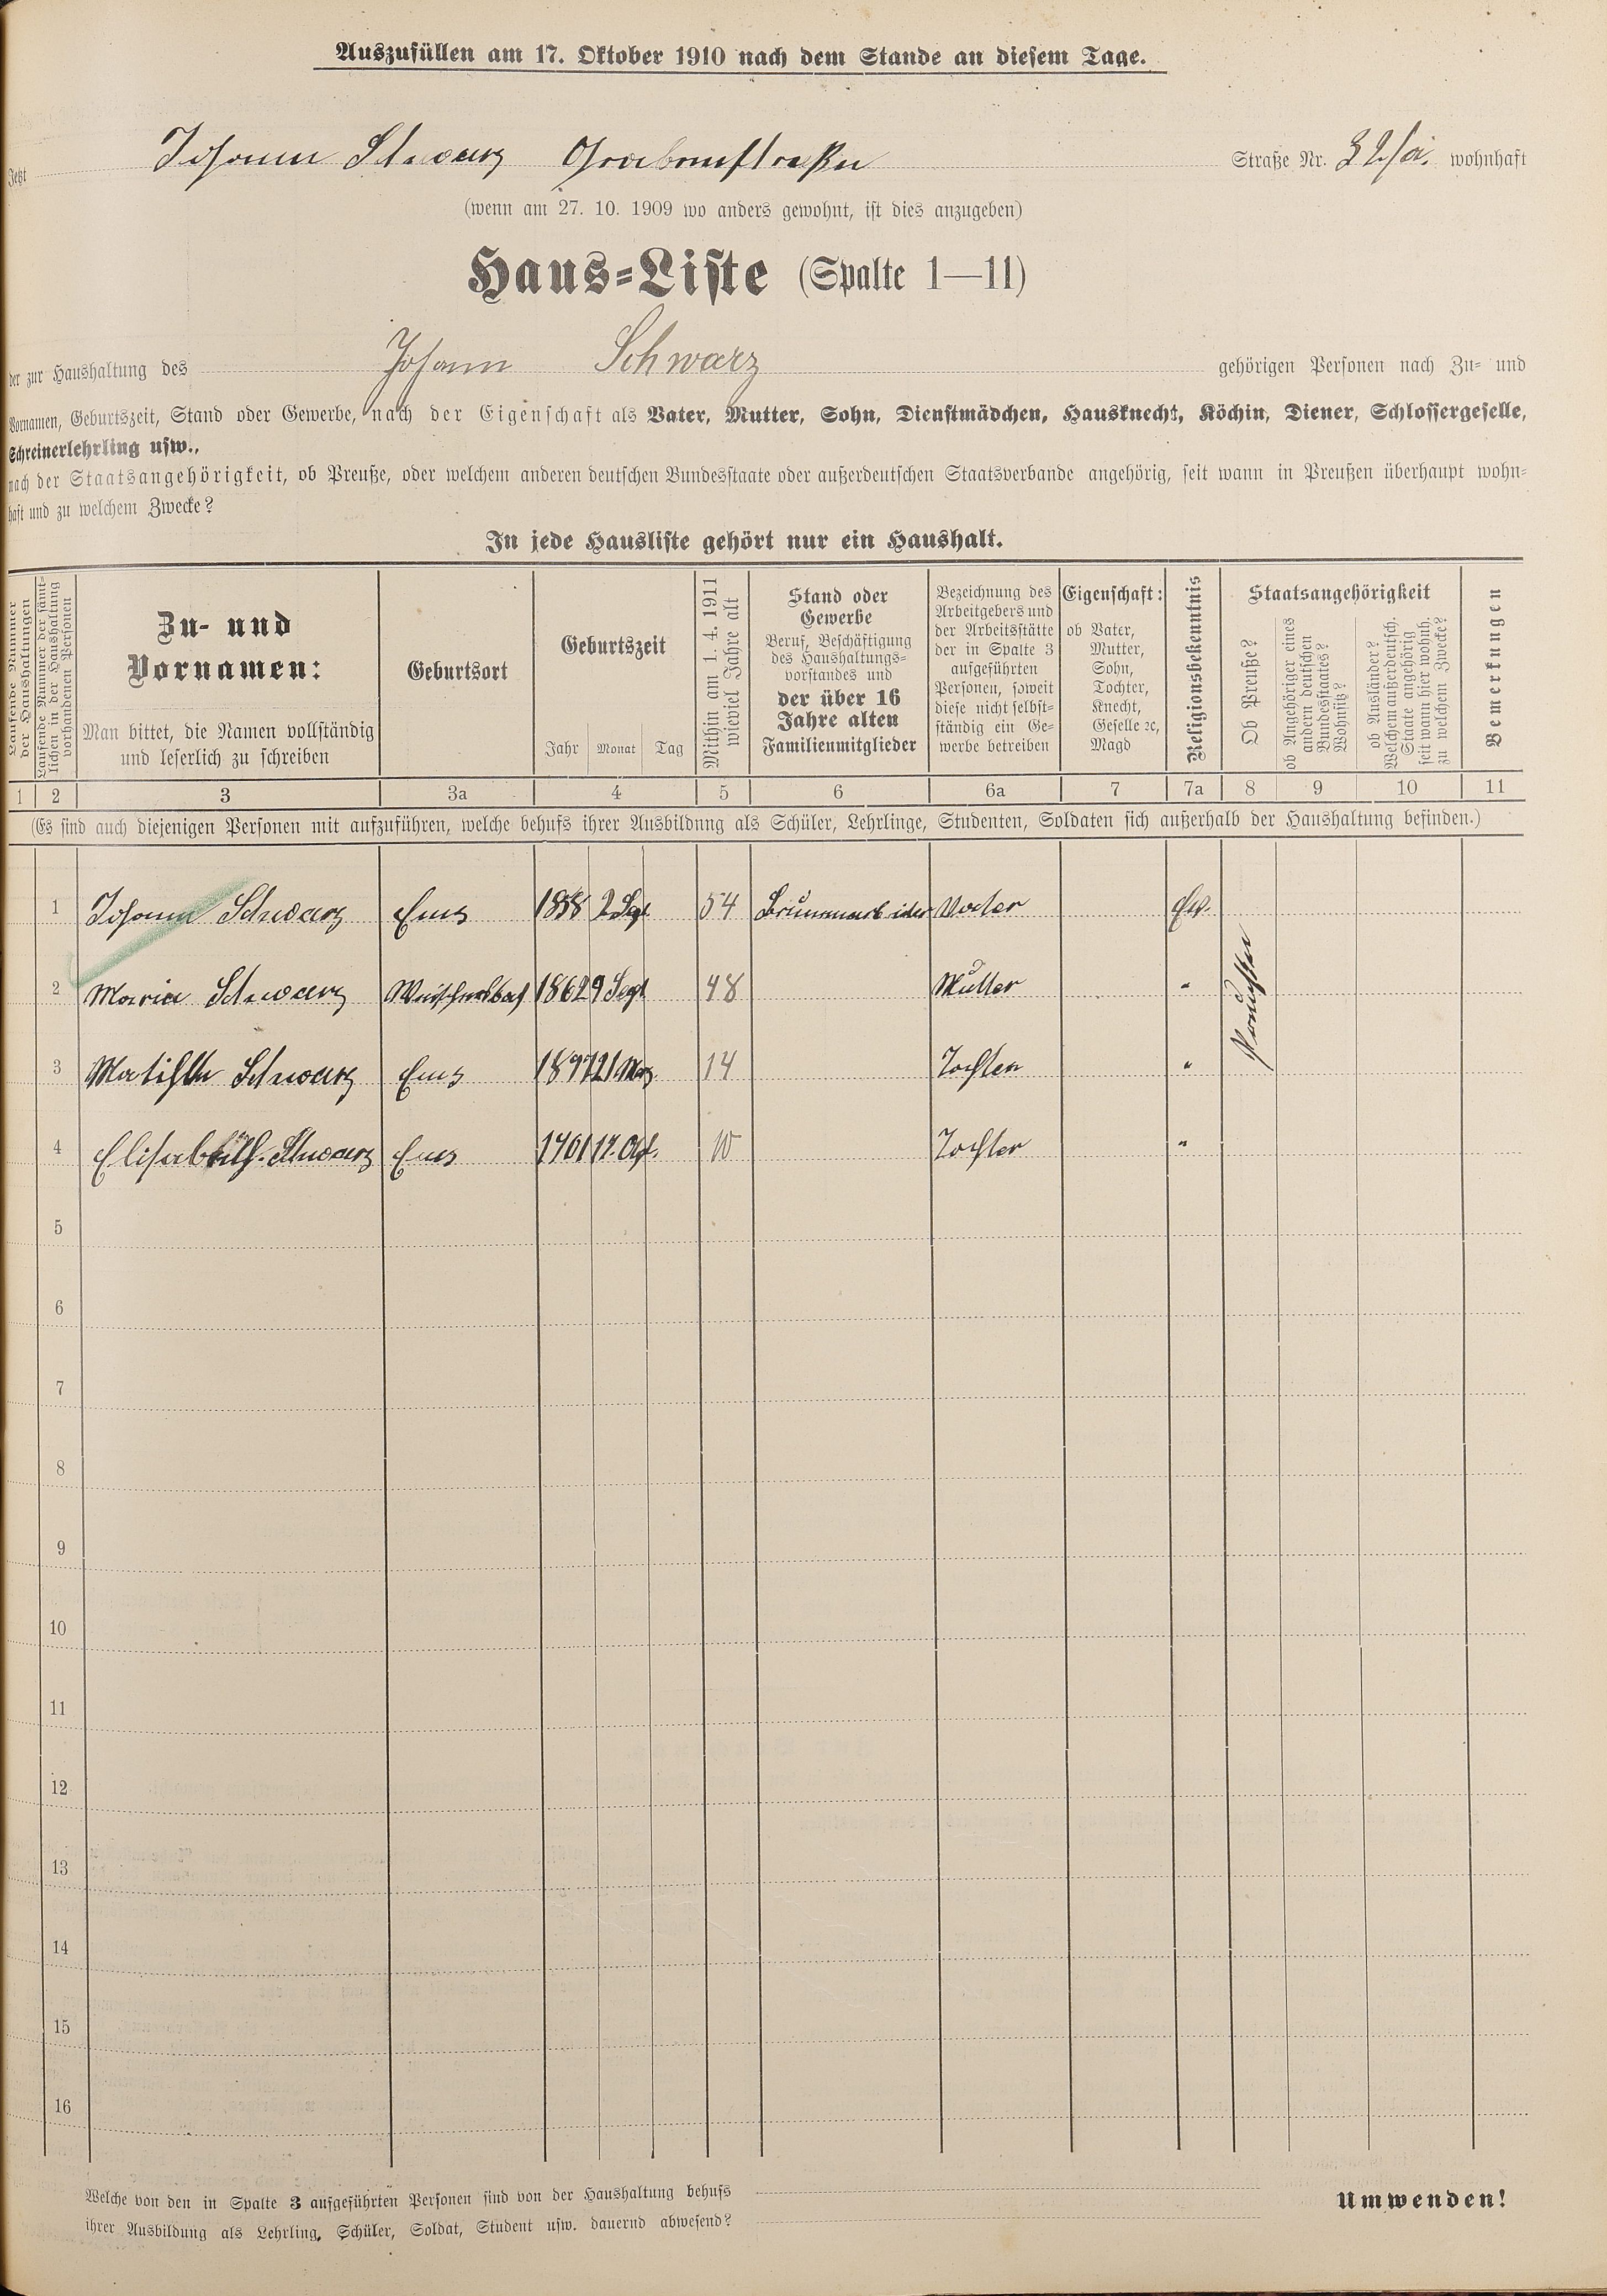 Auszufüllen am 17. Oktober 1910 nach dem Stande an diesem Tage.
Jetzt Johann Schwarz Grabenstraße Straße Nr. 32/a. wohnhaft
(wenn am 27. 10. 1909 wo anders gewohnt, ist dies anzugeben)
Haus-Liste (Spalte 1—11)
der zur Haushaltung des Johann Schwarz gehörigen Personen nach Zu- und
Vornamen, Geburtszeit, Stand oder Gewerbe, nach der Eigenschaft als Vater, Mutter, Sohn, Dienstmädchen, Hausknecht, Köchin, Diener, Schlossergeselle,
Schreinerlehrling usw.,
nach der Staatsangehörigkeit, ob Preuße, oder welchem anderen deutschen Bundesstaate oder außerdeutschen Staatsverbande angehörig, seit wann in Preußen überhaupt wohn-
haft und zu welchem Zwecke?
In jede Hausliste gehört nur ein Haushalt.
Laufende Nummer
der Haushaltungen
Laufende Nummer der sämt-
lichen in der Haushaltung
vorhandenen Personen
Zu- und
Vornamen:
Man bittet, die Namen vollständig
und leserlich zu schreiben
Geburtsort
Geburtszeit
Jahr Monat Tag
Mithin am 1. 4. 1911
wieviel Jahre alt
Stand oder
Gewerbe
Beruf, Beschäftigung
des Haushaltungs-
vorstandes und
der über 16
Jahre alten
Familienmitglieder
Bezeichnung des
Arbeitgebers und
der Arbeitsstätte
der in Spalte 3
aufgeführten
Personen, soweit
diese nicht selbst-
ständig ein Ge-
werbe betreiben
Eigenschaft:
ob Vater,
Mutter,
Sohn,
Tochter,
Knecht,
Geselle ꝛc,
Magd
Religionsbekenntnis
Staatsangehörigkeit
Ob Preuße?
ob Angehöriger eines
andern deutschen
Bundesstaates?
Wohnsitz?
ob Ausländer?
Welchem außerdeutsch.
Staate angehörig
seit wann hier wohnh.
zu welchem Zwecke?
Bemerkungen
1 2 3 3a 4 5 6 6a 7 7a 8 9 10 11
(Es sind auch diejenigen Personen mit aufzuführen, welche behufs ihrer Ausbildung als Schüler, Lehrlinge, Studenten, Soldaten sich außerhalb der Haushaltung befinden.)
1 Johann Schwarz Ems 2 Sept 54 Vater Ev.
2 Maria Schwarz 1862 9 Sept 48 Mutter "
3 Mathilde Schwarz Ems 1897 21 14 Tochter "
4 Elisabeth Schwarz Ems 1901 10 Tochter "
5
6
7
8
9
10
11
12
13
14
15
16
Welche von den in Spalte 3 aufgeführten Personen sind von der Haushaltung behufs
ihrer Ausbildung als Lehrling, Schüler, Soldat, Student usw. dauernd abwesend?
Umwenden!